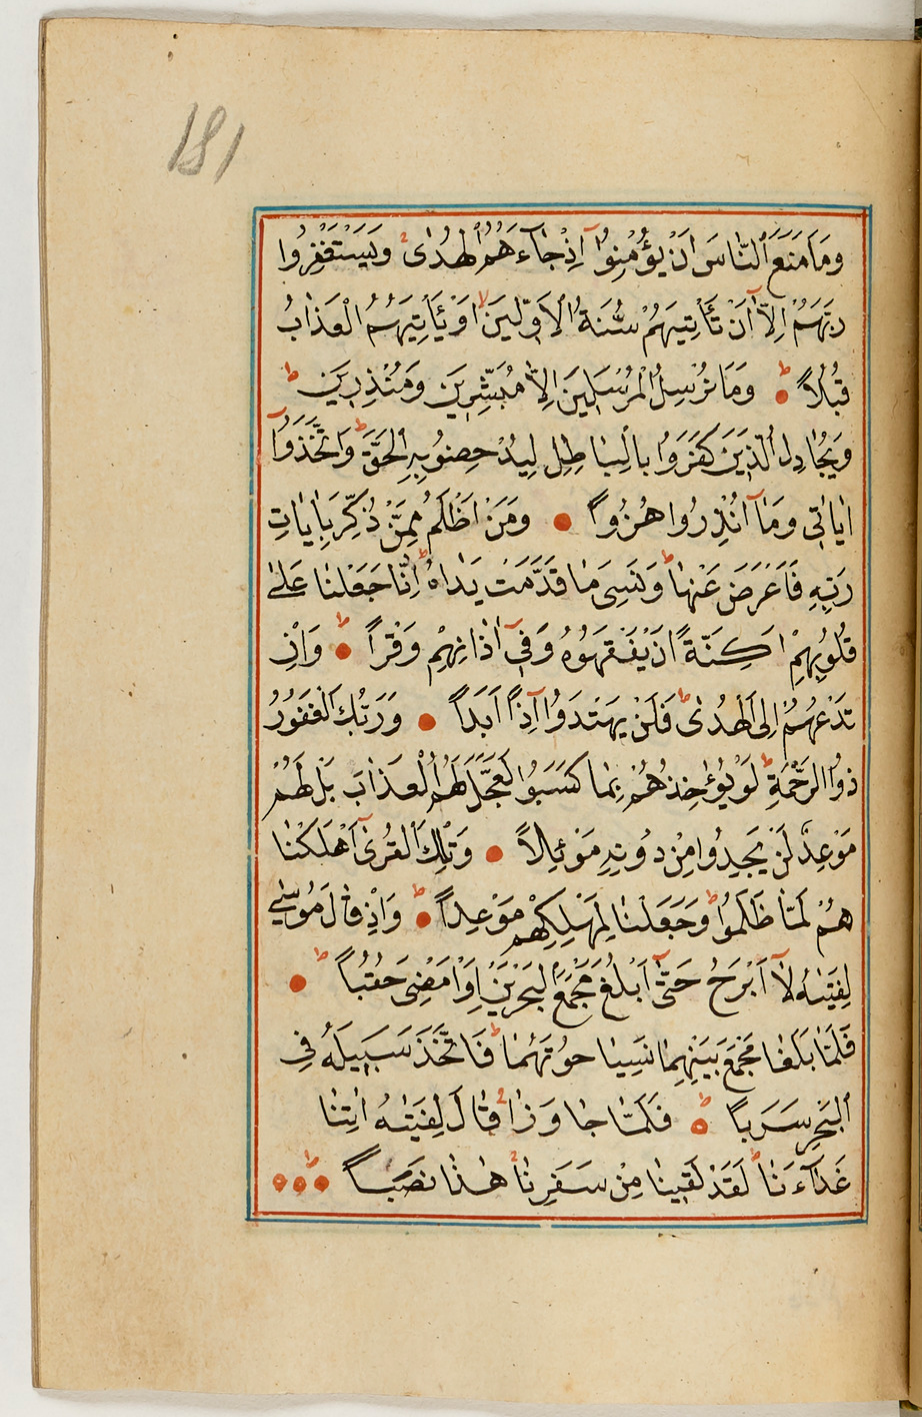 181
وَمَا مَنَعَ النَّاسَ اَنْ يُؤْمِنُوا اِذْ جَاءَهُمُ الْهُدٰى وَيَسْتَغْفِرُوا
رَبَّهُمْ اِلَّا اَنْ تَأْتِيَهُمْ سُنَّةُ الْاَوَّلِينَ اَوْ يَأْتِيَهُمُ الْعَذَابُ
قُبُلًا وَمَا نُرْسِلُ الْمُرْسَلِينَ اِلَّا مُبَشِّرِينَ وَمُنْذِرِينَ
وَيُجَادِلُ الَّذِينَ كَفَرُوا بِالْبَاطِلِ لِيُدْحِضُوا بِهِ الْحَقَّ وَاتَّخَذُوا
اٰيَاتِى وَمَا اُنْذِرُوا هُزُوًا وَمَنْ اَظْلَمُ مِمَّنْ ذُكِّرَ بِاٰيَاتِ
رَبِّهِ فَاَعْرَضَ عَنْهَا وَنَسِىَ مَا قَدَّمَتْ يَدَاهُ اِنَّا جَعَلْنَا عَلٰى
قُلُوبِهِمْ اَكِنَّةً اَنْ يَفْقَهُوهُ وَفِى اٰذَانِهِمْ وَقْرًا وَاِنْ
تَدْعُهُمْ اِلَى الْهُدٰى فَلَنْ يَهْتَدُوا اِذًا اَبَدًا وَرَبُّكَ الْغَفُورُ
ذُو الرَّحْمَةِ لَوْ يُؤَاخِذُهُمْ بِمَا كَسَبُوا لَعَجَّلَ لَهُمُ الْعَذَابَ بَلْ لَهُمْ
مَوْعِدٌ لَنْ يَجِدُوا مِنْ دُونِهِ مَوْئِلًا وَتِلْكَ الْقُرٰى اَهْلَكْنَا
هُمْ لَمَّا ظَلَمُوا وَجَعَلْنَا لِمَهْلِكِهِمْ مَوْعِدًا وَاِذْ قَالَ مُوسٰى
لِفَتٰيهُ لَا اَبْرَحُ حَتّٰى اَبْلُغَ مَجْمَعَ الْبَحْرَيْنِ اَوْ اَمْضِىَ حُقُبًا
فَلَمَّا بَلَغَا مَجْمَعَ بَيْنِهِمَا نَسِيَا حُوتَهُمَا فَاتَّخَذَ سَبِيلَهُ فِى
الْبَحْرِ سَرَبًا فَلَمَّا جَاوَزَا قَالَ لِفَتٰيهُ اٰتِنَا
غَدَاءَنَا لَقَدْ لَقِينَا مِنْ سَفَرِنَا هٰذَا نَصَبًا